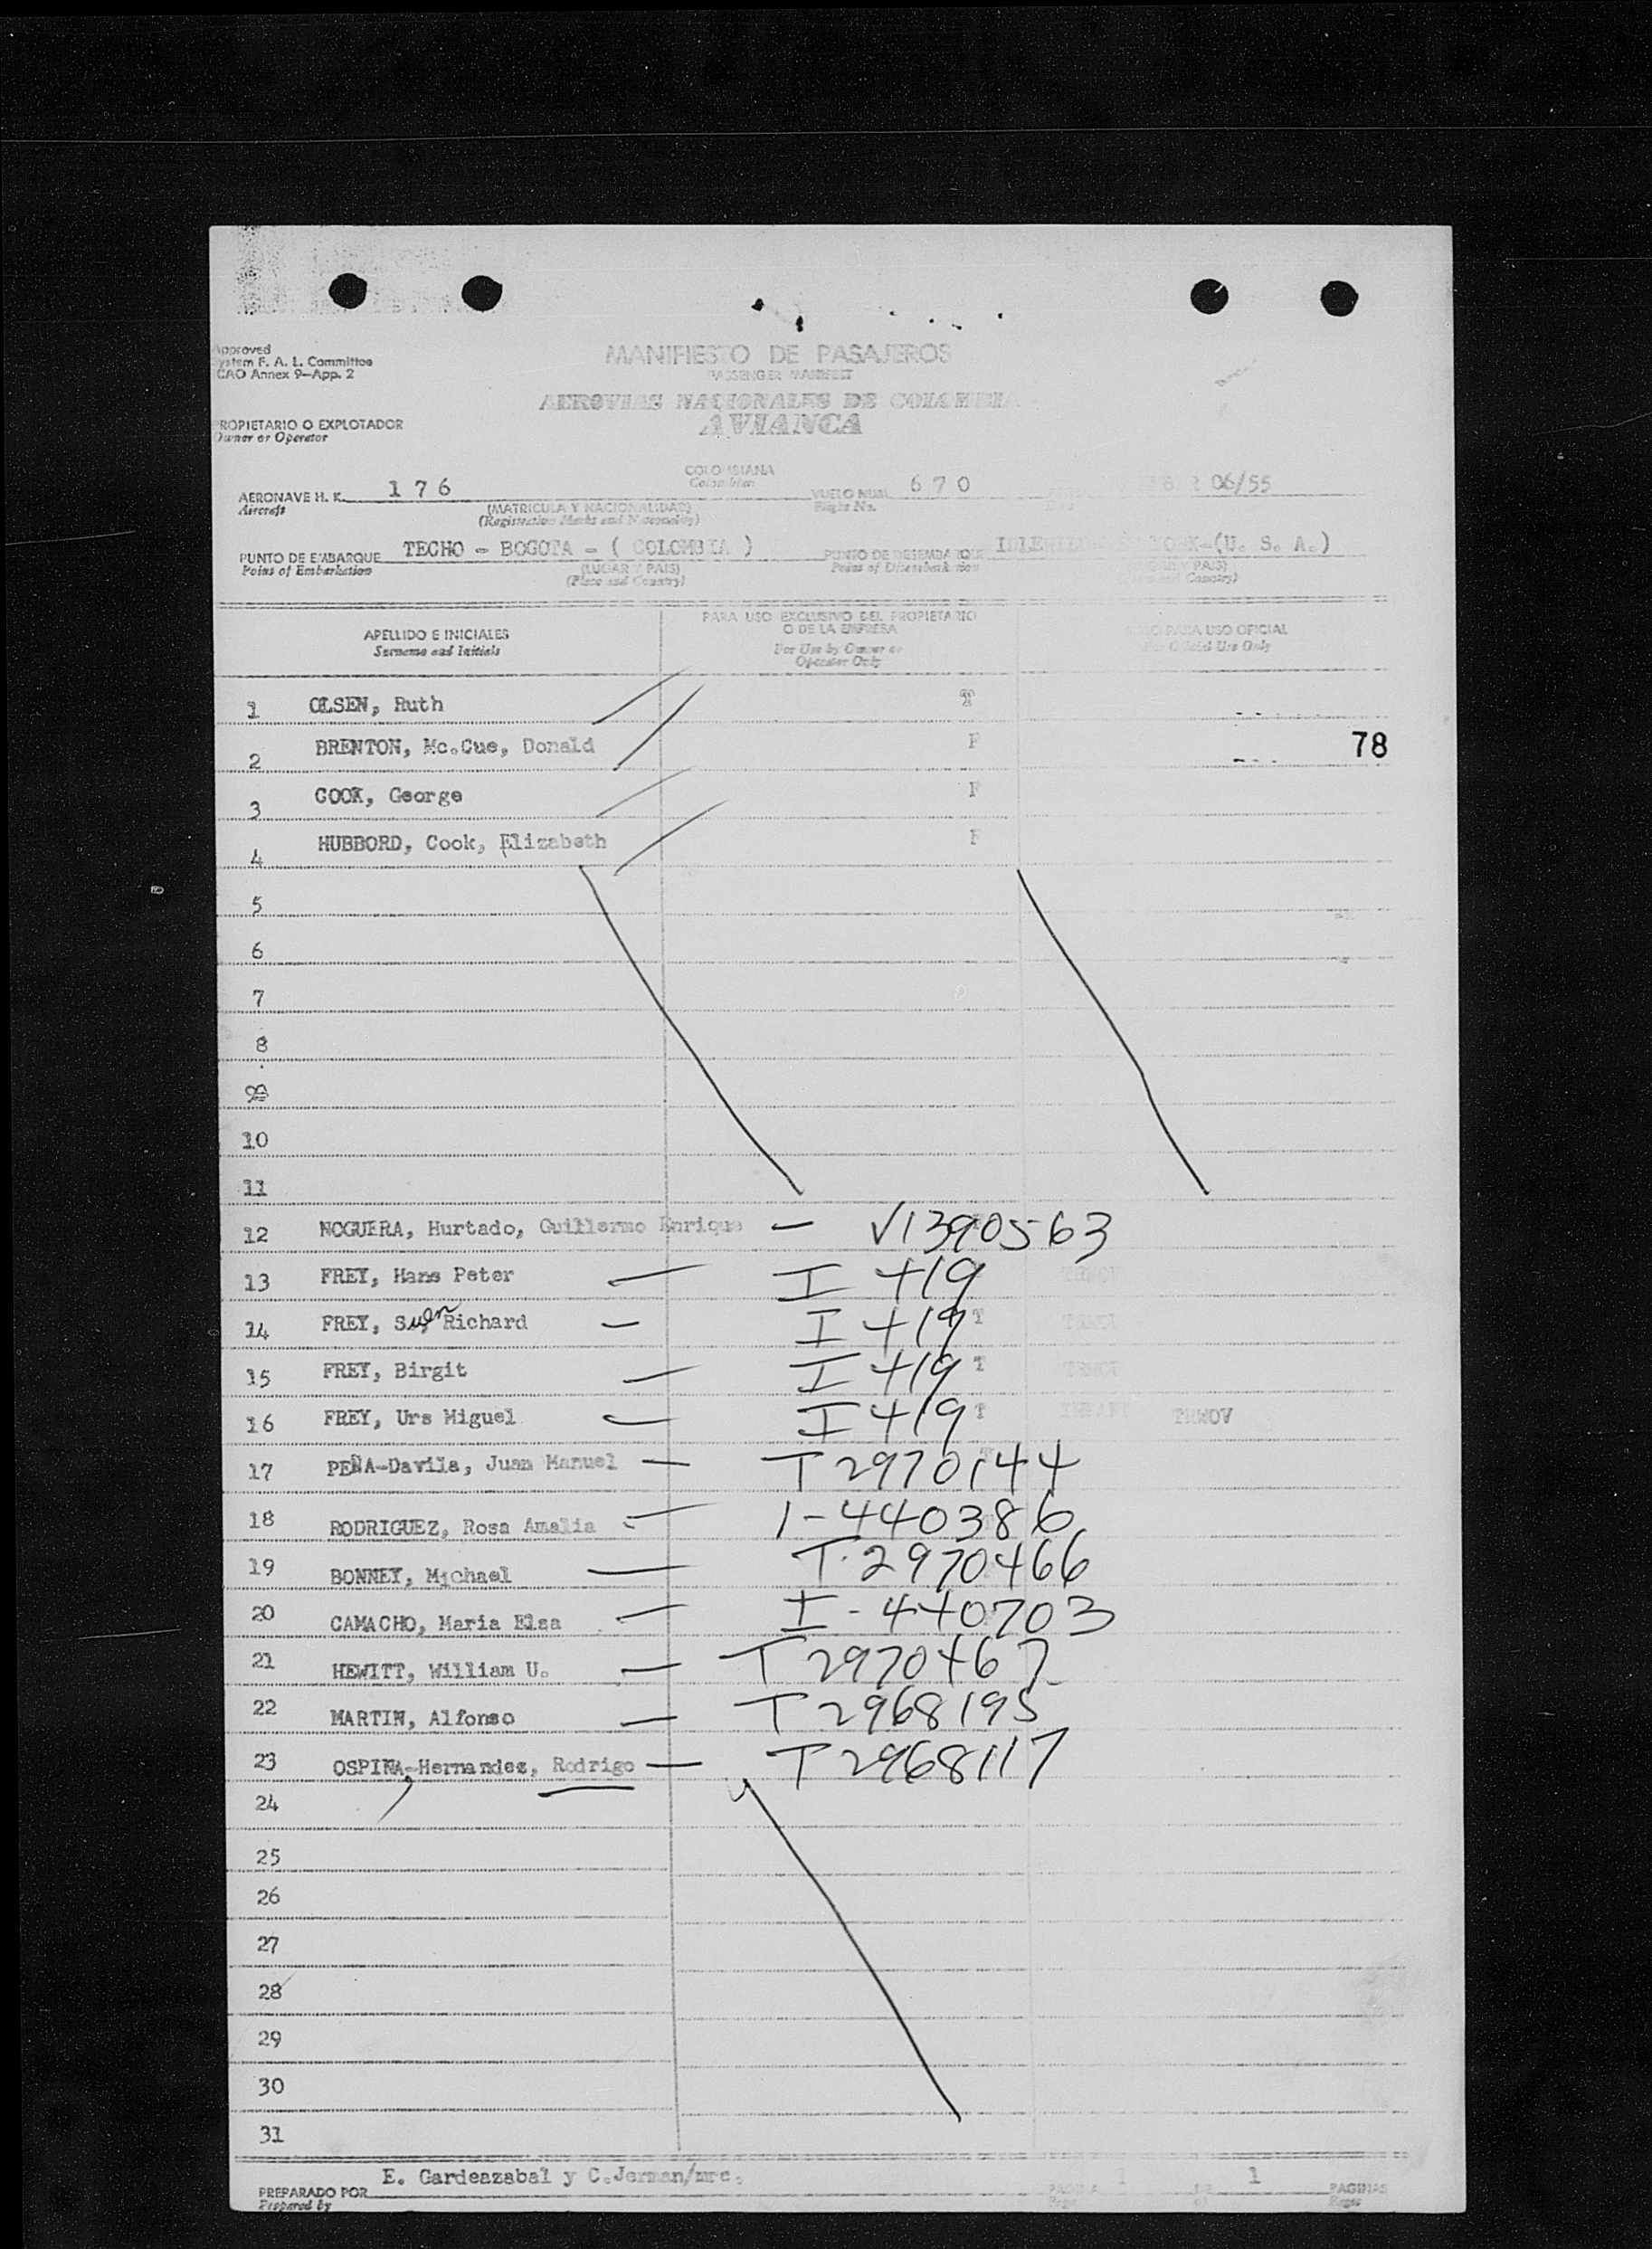 Approved
System F. A. L. Committee
ICAO Annex 9—App. 2
MANIFIESTO DE PASAJEROS
PASSENGER MANIFEST
AEROVIAS NACIONALES DE COLOMBIA
AVIANCA
PROPIETARIO O EXPLOTADOR
Owner or Operator
AERONAVE H. K. 176 COLOMBIANA VUELO NUM. 670 06/55
Aircraft (MATRICULA Y NACIONALIDAD) Colombian Flight No.
(Registration Marks and Nationality)
PUNTO DE EMBARQUE TECHO - BOGOTA - ( COLOMBIA ) PUNTO DE DESEMBARQUE YORK-(U. S. A.)
Point of Embarkation (LUGAR Y PAIS) Point of Disembarkation PAIS)
(Place and Country) Country)
APELLIDO E INICIALES PARA USO EXCLUSIVO DEL PROPIETARIO O DE LA EMPRESA PARA USO OFICIAL
Surname and Initials For Use by Owner or Operator Only For Official Use Only
1 OLSEN, Ruth T
2 BRENTON, Mc.Cue, Donald F 78
3 COOK, George F
4 HUBBORD, Cook, Elizabeth F
5
6
7
8
9
10
11
12 NOGUERA, Hurtado, Guillermo Enrique — V1390563
13 FREY, Hans Peter — I 419
14 FREY, Suen Richard — I 419 T
15 FREY, Birgit — I 419 T
16 FREY, Urs Miguel — I 419 T
17 PEÑA-Davila, Juan Manuel — T 2970144
18 RODRIGUEZ, Rosa Amalia — 1-440386
19 BONNEY, Michael — T 2970466
20 CAMACHO, Maria Elsa — I-440703
21 HEWITT, William U. — T 2970467
22 MARTIN, Alfonso — T 2968195
23 OSPINA-Hernandez, Rodrigo — T 2968117
24
25
26
27
28
29
30
31
PREPARADO POR E. Gardeazabal y C.Jerman/mrc. PAGINA 1 DE 1 PAGINAS
Prepared by Page of Pages